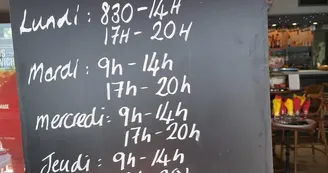 Lundi : 830 - 14H
17H - 20H
Mardi : 9h - 14h
17h - 20h
mercredi : 9h - 14h
17h - 20h
Jeudi : 9h - 14h